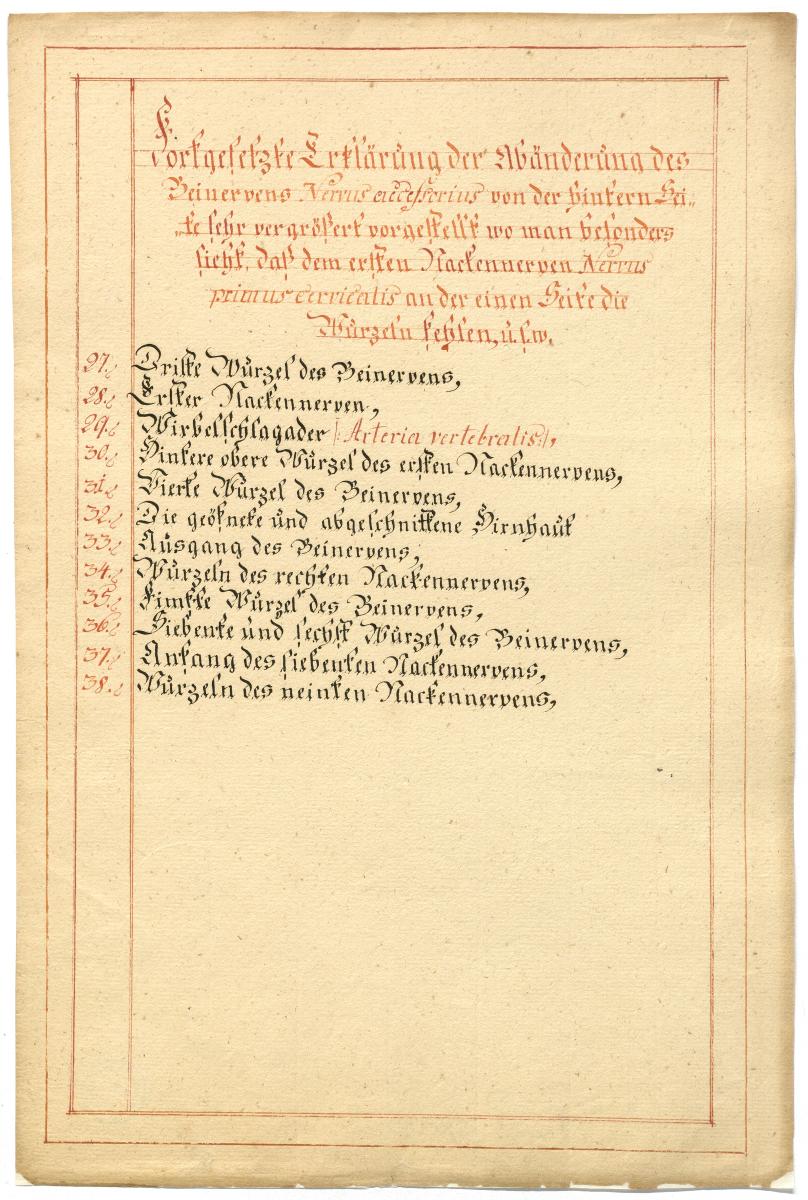 Fortgesetzte Erklärung der Abänderung des
Beinervens Nervus accessorius von der hintern Sei„
„te sehr vergrößert vorgestellt wo man besonders
sieht, daß dem ersten Nackennerven Nervus
primus cervicalis an der einen Seite die
Würzeln fehlen, ü. s. w.
27. Dritte Würzel des Beinervens,
28. Erster Nackennerven,
29. Wirbelschlagader |: Arteria vertebralis :|,
30. Hintere obere Würzel des ersten Nackennervens,
31. Vierte Würzel des Beinervens,
32. Die geöfnete ünd abgeschnittene Hirnhaut
33. Aüsgang des Beinervens,
34. Würzeln des rechten Nackennervens,
35. Fimfte Würzel des Beinervens,
36. Siebente ünd sechst Würzel des Beinervens,
37. Anfang des siebenten Nackennervens,
38. Würzeln des neinten Nackennervens,